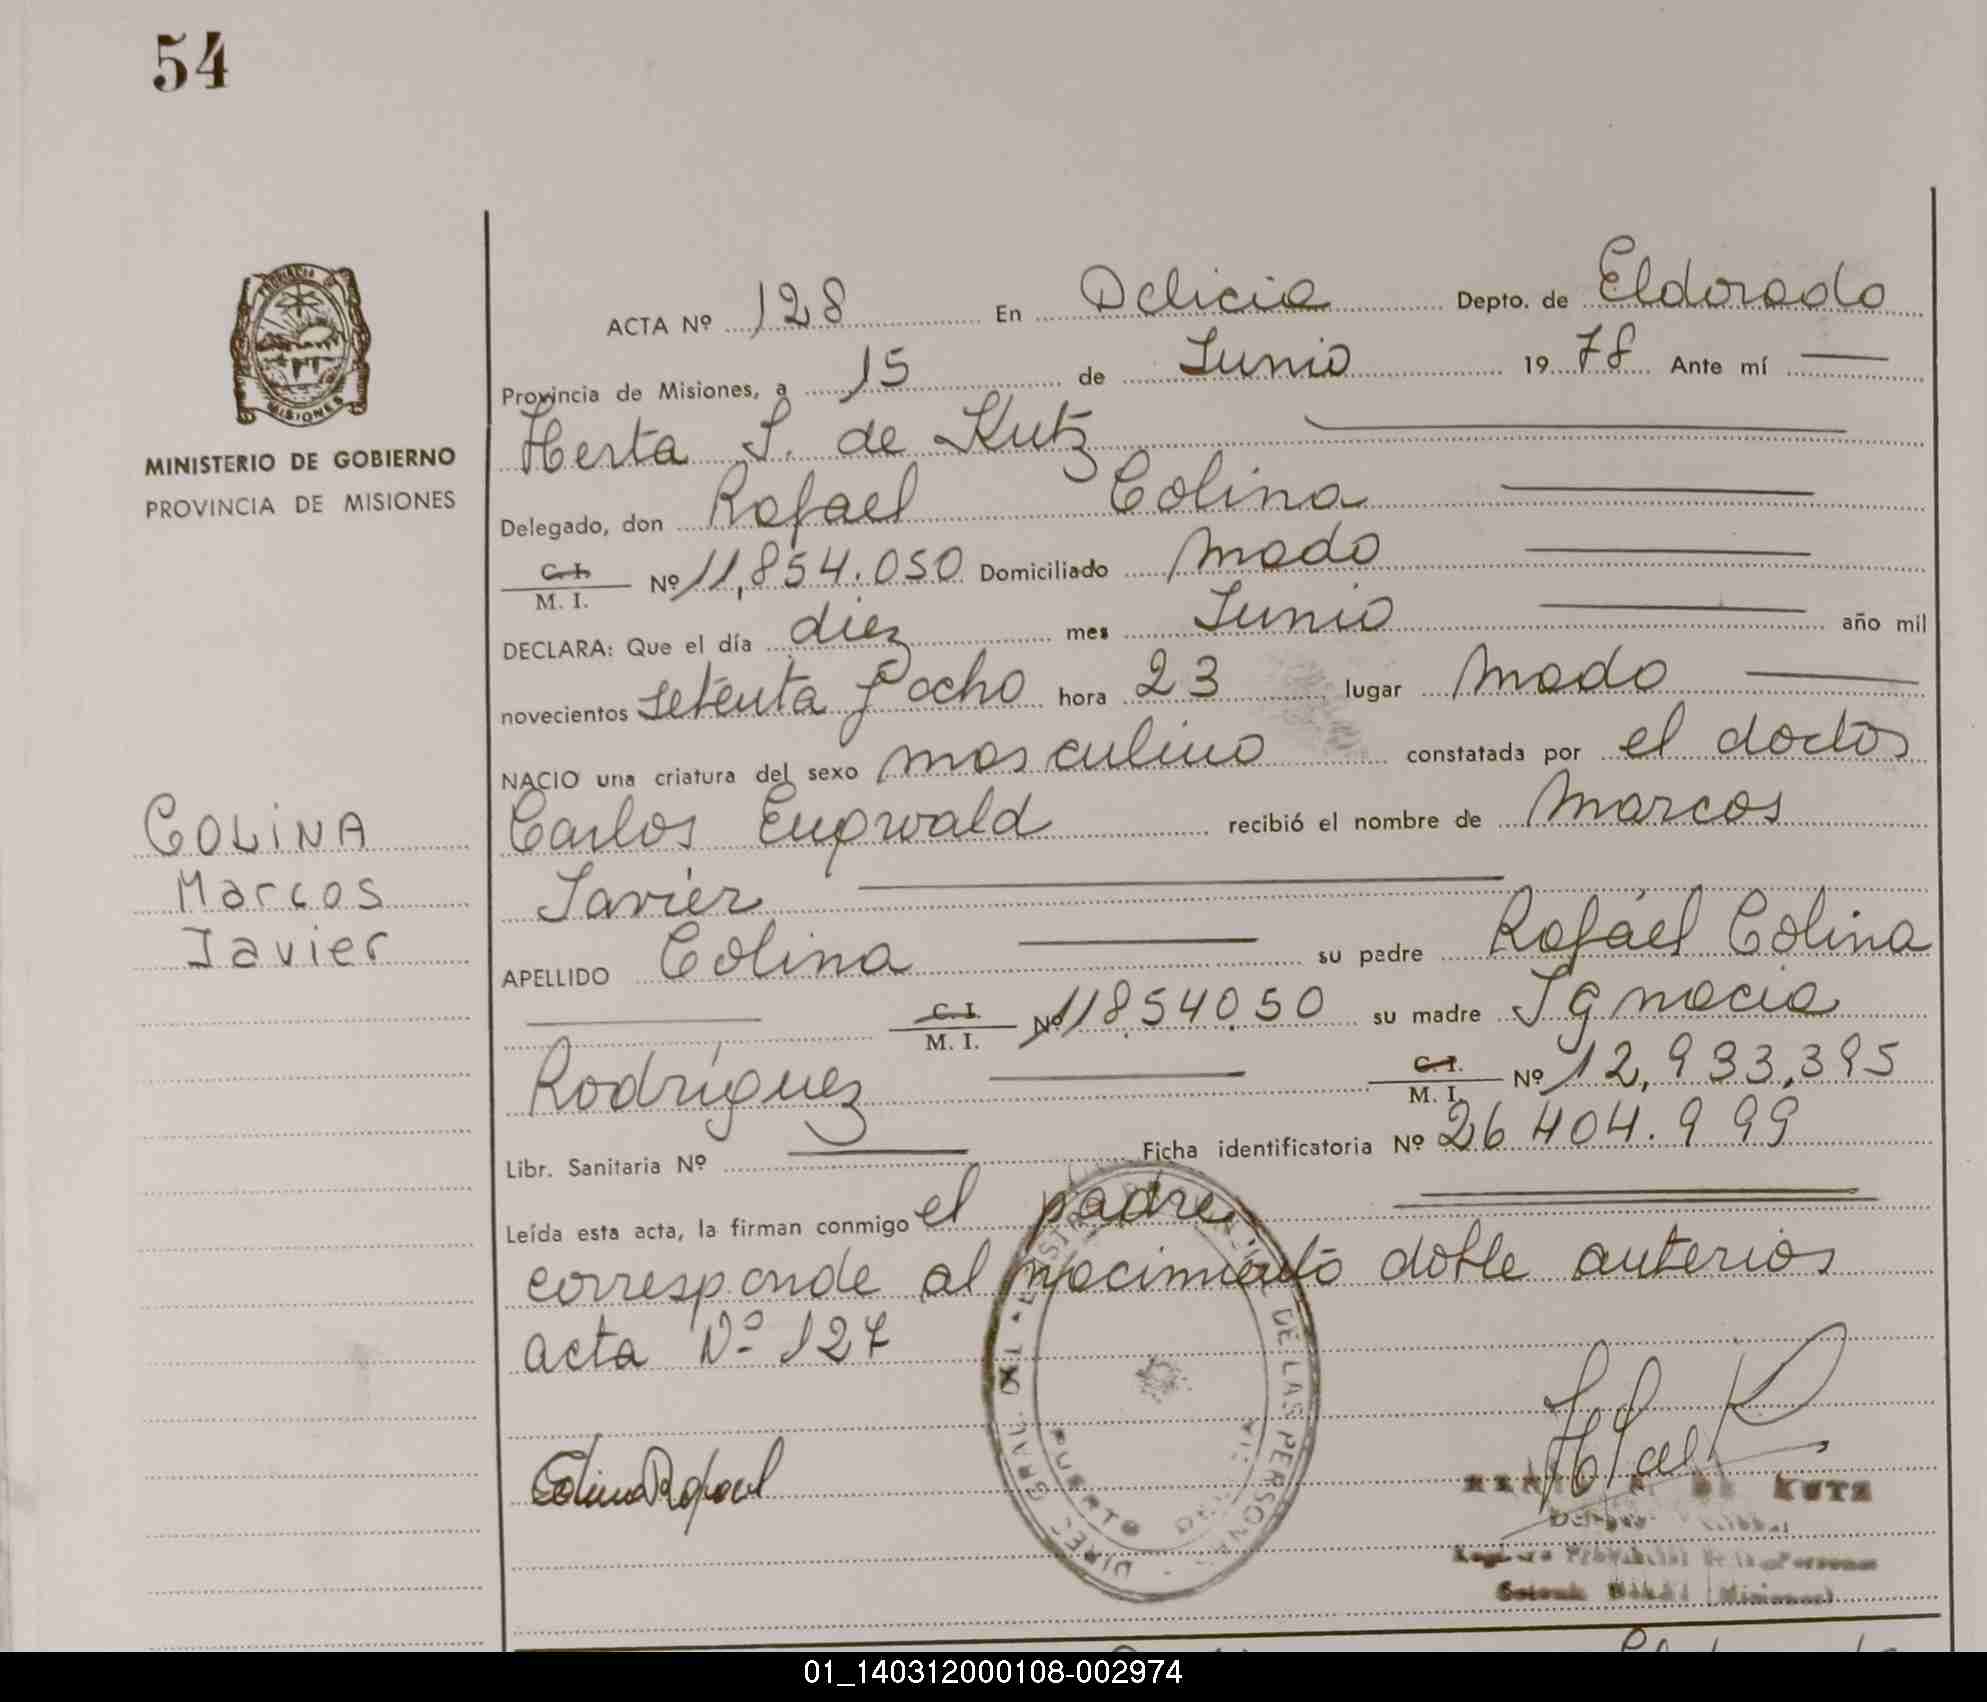 54
PROVINCIA DE
MISIONES
MINISTERIO DE GOBIERNO
PROVINCIA DE MISIONES
ACTA Nº 128 En Delicia Depto. de Eldorado
Provincia de Misiones, a 15 de Junio 1978 Ante mí
Herta S. de Kutz
Delegado, don Rafael Colina
C. I. / M. I. Nº 11,854.050 Domiciliado Mado
DECLARA: Que el día diez mes Junio año mil
novecientos setenta y ocho hora 23 lugar Mado
NACIO una criatura del sexo masculino constatada por el doctor
Carlos Engwald recibió el nombre de Marcos
Javier
COLINA
Marcos
Javier
APELLIDO Colina su padre Rafael Colina
C. I. / M. I. Nº 11854050 su madre Ignacia
Rodríguez C. I. / M. I. Nº 12,933,395
Libr. Sanitaria Nº Ficha identificatoria Nº 26 404.999
Leída esta acta, la firman conmigo el padre,
corresponde al nacimiento doble anterior
acta Nº 127
Colina Rafael
DE LAS PERSONAS
DIREC. GRAL.
PUERTO
DE KUTZ
01_140312000108-002974